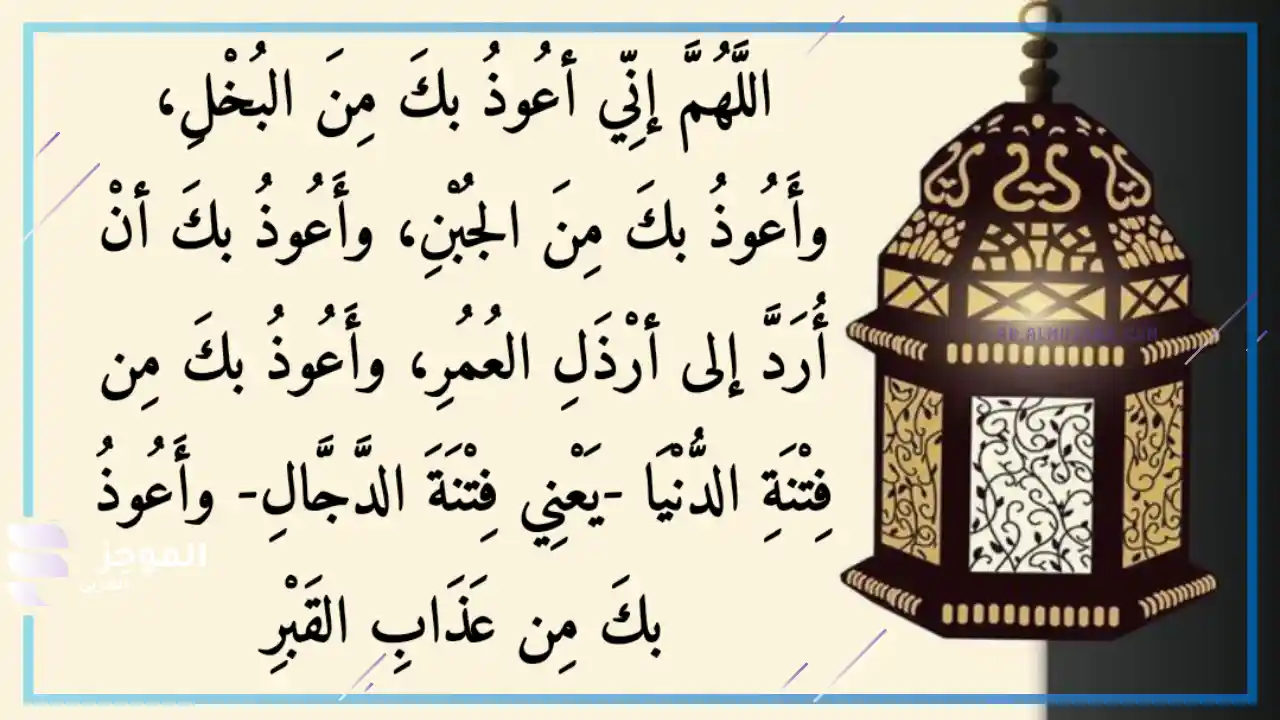 اللَّهُمَّ إنِّي أعُوذُ بكَ مِنَ البُخْلِ،
وأَعُوذُ بكَ مِنَ الجُبْنِ، وأَعُوذُ بكَ أنْ
أُرَدَّ إلى أرْذَلِ العُمُرِ، وأَعُوذُ بكَ مِن
فِتْنَةِ الدُّنْيَا -يَعْنِي فِتْنَةَ الدَّجَّالِ- وأَعُوذُ
بكَ مِن عَذَابِ القَبْرِ
الموجز
العربي